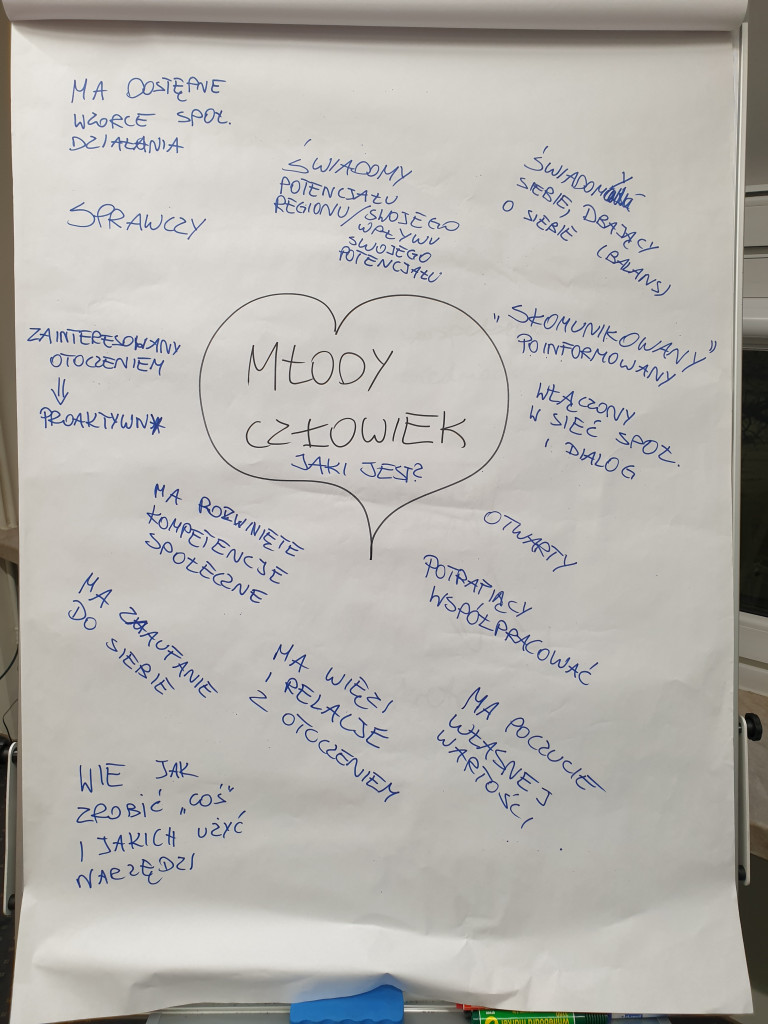 MA DOSTĘPNE
WZORCE SPOŁ.
DZIAŁANIA
SPRAWCZY
ŚWIADOMY
POTENCJAŁU
REGIONU/SWOJEGO
WPŁYWU
SWOJEGO
POTENCJAŁU
ŚWIADOMY
SIEBIE, DBAJĄCY
O SIEBIE (BALANS)
ZAINTERESOWANY
OTOCZENIEM
⇓
PROAKTYWNY
MŁODY
CZŁOWIEK
JAKI JEST?
„SKOMUNIKOWANY”
POINFORMOWANY
WŁĄCZONY
W SIEĆ SPOŁ.
I DIALOG
MA ROZWNIĘTE
KOMPETENCJE
SPOŁECZNE
OTWARTY
POTRAFIĄCY
WSPÓŁPRACOWAĆ
MA ZAUFANIE
DO SIEBIE
MA WIĘZI
I RELACJE
Z OTOCZENIEM
MA POCZUCIE
WŁASNEJ
WARTOŚCI
WIE JAK
ZROBIĆ „COŚ”
I JAKICH UŻYĆ
NARZĘDZI